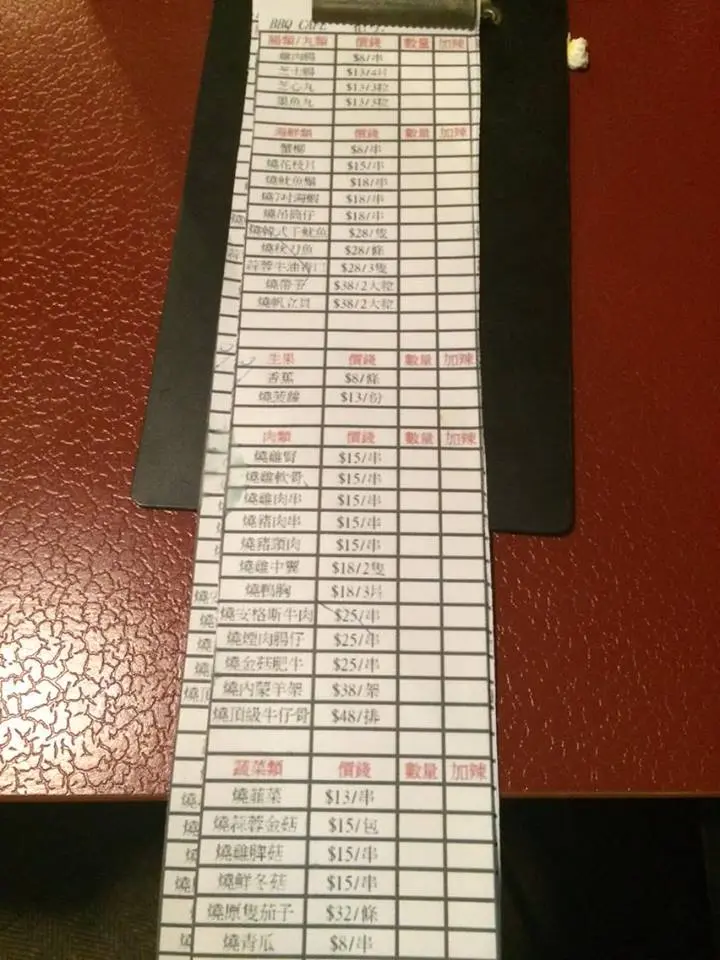 BBQ CAFE
腸類/丸類 價錢 數量 加辣
雞肉腸 $8/串
芝士腸 $13/4片
芝心丸 $13/3粒
墨魚丸 $13/3粒
海鮮類 價錢 數量 加辣
蟹柳 $8/串
燒花枝片 $15/串
燒魷魚鬚 $18/串
燒7吋海蝦 $18/串
燒吊筒仔 $18/串
燒韓式干魷魚 $28/隻
燒秋刀魚 $28/條
蒜蓉牛油青口 $28/3隻
燒帶子 $38/2大粒
燒帆立貝 $38/2大粒
生果 價錢 數量 加辣
香蕉 $8/條
燒菠蘿 $13/份
肉類 價錢 數量 加辣
燒雞腎 $15/串
燒雞軟骨 $15/串
燒雞肉串 $15/串
燒豬肉串 $15/串
燒豬頸肉 $15/串
燒雞中翼 $18/2隻
燒鴨胸 $18/3片
燒安格斯牛肉 $25/串
燒煙肉腸仔 $25/串
燒金菇肥牛 $25/串
燒內蒙羊架 $38/架
燒頂級牛仔骨 $48/排
蔬菜類 價錢 數量 加辣
燒韮菜 $13/串
燒蒜蓉金菇 $15/包
燒雞脾菇 $15/串
燒鮮冬菇 $15/串
燒原隻茄子 $32/條
燒青瓜 $8/串